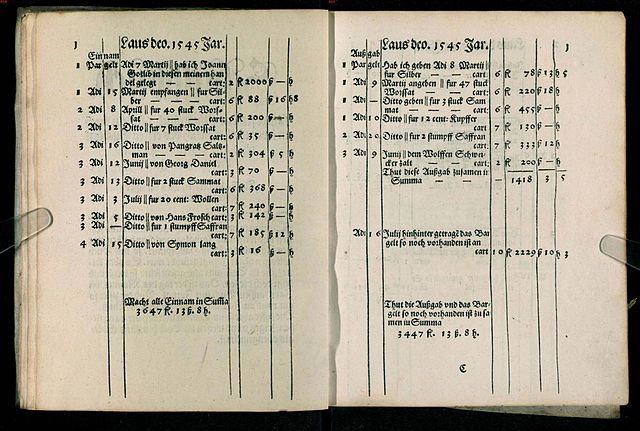 1 Laus deo. 1545 Jar.
Einnam
1 Par gelt Adi 7 Martij || hab ich Joann
Gotlib in diesen meinen han
del gelegt — — cart: 2 fl 2000 ß — h
1 Adi 15 Martij empfangen || fur Sil-
ber — — cart: 6 fl 88 ß 16 h 8
2 Adi 8 Aprill || fur 40 stuck Worf-
sat — — cart: 6 fl 200 ß — h
2 Adi 12 Ditto || fur 7 stuck Worssat
cart: 6 fl 35 ß — h
3 Adi 16 Ditto || von Pangratz Saltz-
man — — cart: 2 fl 304 ß 5 h
3 Adi 12 Junij || von Georg Daniel
cart: 3 fl 70 ß — h
3 Adi 13 Ditto || fur 2 stuck Sammat
cart: 6 fl 368 ß — h
3 Adi 3 Julij || fur 20 cent: Wollen
cart: 7 fl 240 ß — h
3 Adi 5 Ditto || von Hans Frosch cart: 3 fl 142 ß — h
3 Adi — Ditto || fur 1 stumpff Saffran
cart: 7 fl 185 ß 12 h
4 Adi 15 Ditto || von Symon lang
cart: 3 fl 16 ß — h
Macht alle Einnam in Suma
3647 fl. 13 ß. 8 h.
Laus deo. 1545 Jar. 1
Außgab
1 Par gelt Hab ich geben Adi 8 Martij
fur Silber — cart 6 fl 78 ß 13 h 5
1 Adi 9 Martij angeben || fur 47 stuck
Worssat — cart: 6 fl 220 ß 18 h
1 Adi — Ditto geben || fur 3 stuck Sam
mat — — cart: 6 fl 455 ß — h
1 Adi 10 Ditto || fur 12 cent: Kupffer
cart: 7 fl 130 ß — h
2 Adi 20 Ditto || fur 2 stumpff Saffran
cart: 7 fl 333 ß 12 h
3 Adi 9 Junij || dem Wolffen Schwei-
cker zalt — cart: 2 fl 200 ß — h
Thut diese Außgab zusamen in
Summa — — 1418 3 5
Adi 16 Julij hinhinter getragē das Bar
gelt so noch vorhanden ist an
cart 10 fl 2229 ß 10 h 3
Thut die Außgab vnd das Bar-
gelt so noch vorhanden ist zu sa
men in Summa
3447 fl. 13 ß. 8 h.
C